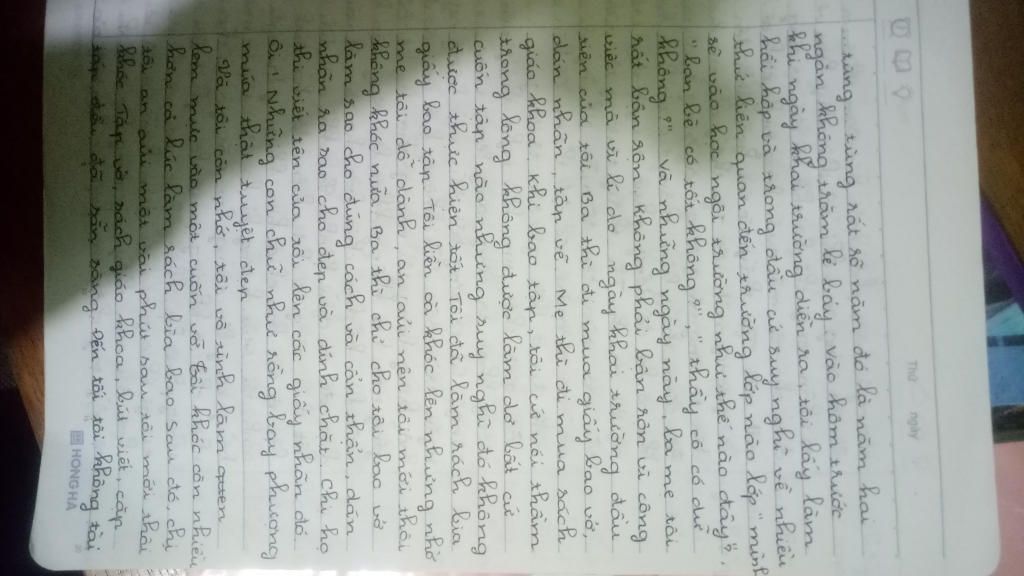 Thứ ngày
từng... từng rất rõ năm đó là năm hai
ngàn không trăm lẻ bảy vào hôm trước
khi ngày khai trường diễn ra, tôi lấy làm
hồi hộp và trong đầu cứ suy nghĩ về nhiều
thứ liên quan đến trường lớp nào lớp " mình
sẽ vào học ngôi trường như thế nào đây",
"bạn bè có tôi không?", "thầy cô có dữ
không?". Và những ngày này, ba mẹ tôi
rất bận rộn không phải bận rộn vì công
việc mà vì lí do ngày khai trường đầu
tiên của tôi Ba thì đi mua giấy bao vở,
dán nhãn, tập vẽ. Mẹ thì đi mua sách
giáo khoa. Khi bao tập, tôi cứ nói thầm
trong lòng không được làm dơ bất cứ
cuốn tập nào nhưng suy nghĩ đó không
được thực hiện tốt Tôi đã làm rách bìa
giấy bao tập. Tôi liền oà khóc lên nhưng nhờ
mẹ tôi dỗ dành, an ủi nên tôi mới thôi
không khóc nữa Ba thì chỉ cho tôi bao vở
làm sao cho đúng cách và cẩn thận, dán
nhãn ra sao cho đẹp và dính chặt. Chị họ
thì viết tên của tôi lên các giấy nhãn đó
Ôi! Những con chữ như rồng bay phượng
múa thật tuyệt đẹp
Và tôi còn nhớ, tôi vô tình làm
lem mực vào một cuốn vở Tôi khóc còn nhiều
hơn cả lúc làm rách bìa bao Sau đó, chị
tôi an ủi một vài phút sau tôi mới thôi
khóc Tập vở, sách giáo khoa, bút viết, cặp
táp đều đã sẵn sàng Đến tối tôi không tài
HONG HA